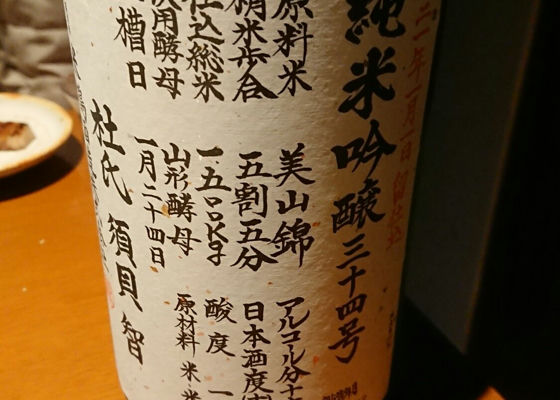 二一年一月一日留仕込
純米吟醸三十四号
原料米 美山錦 アルコール分十
精米歩合 五割五分 日本酒度
仕込総米 一五〇〇kg 酸度 一
使用酵母 山形酵母 原材料 米 米
槽日 一月二十四日
杜氏 須貝 智